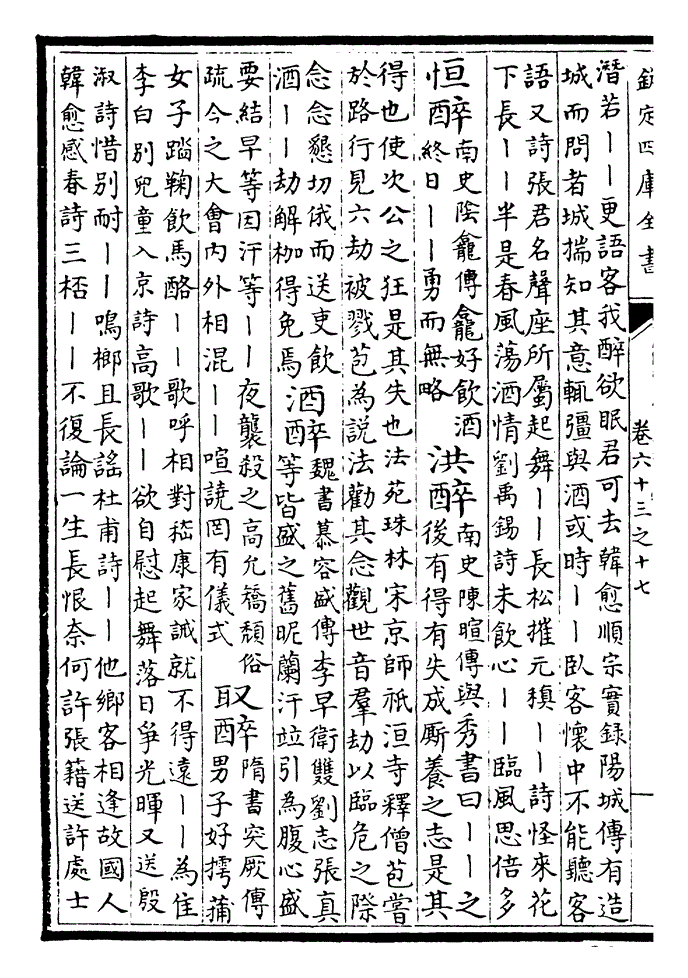 欽定四庫全書 卷六十三之十七
潛若——更語客我醉欲眠君可去韓愈順宗實錄陽城傳有造
城而問者城揣知其意輒彊與酒或時——臥客懷中不能聽客
語又詩張君名聲座所屬起舞——長松摧元稹——詩怪來花
下長——半是春風蕩酒情劉禹錫詩未飲心——臨風思倍多
恒醉 南史陰龕傳龕好飲酒
終日——勇而無略
洪醉 南史陳暄傳與秀書曰——之
後有得有失成厮養之志是其
得也使次公之狂是其失也法苑珠林宋京師祇洹寺釋僧苞嘗
於路行見六劫被戮苞為說法勸其念觀世音羣劫以臨危之際
念念懇切俄而送吏飲
酒——劫解枷得免焉
酒醉 魏書慕容盛傳李早衛雙劉志張真
等皆盛之舊昵蘭汗竝引為腹心盛
要結早等因汗等——夜襲殺之高允矯頹俗
疏今之大會內外相混——喧譊罔有儀式
取醉 隋書突厥傳
男子好摴蒲
女子蹋鞠飲馬酪——歌呼相對嵇康家誡就不得遠——為佳
李白別兒童入京詩高歌——欲自慰起舞落日爭光暉又送殷
淑詩惜別耐——鳴榔且長謠杜甫詩——他鄉客相逢故國人
韓愈感春詩三桮——不復論一生長恨奈何許張籍送許處士